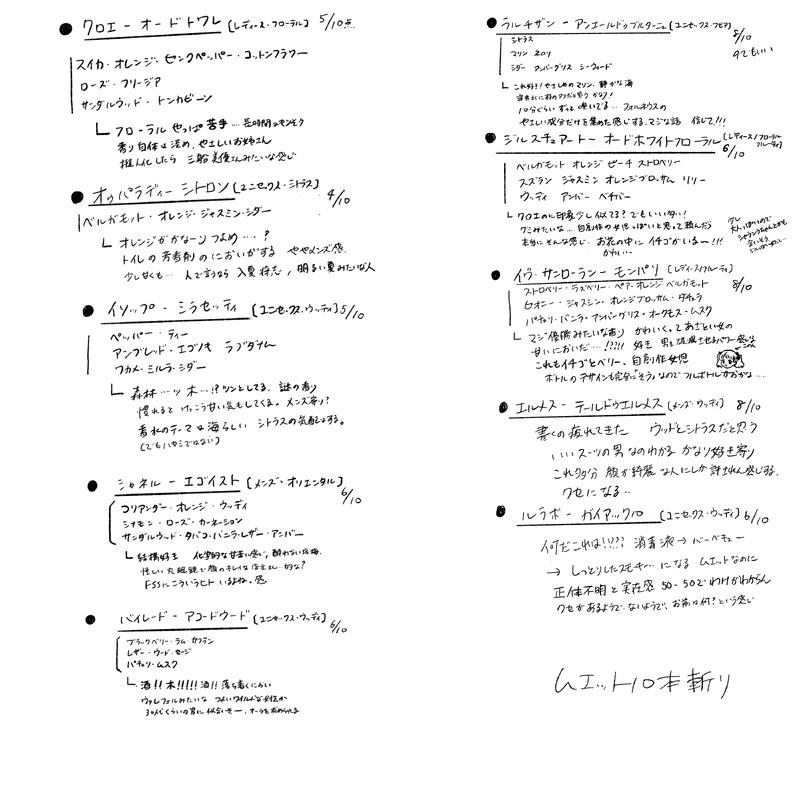 ● クロエー オードトワレ [レディース・フローラル] 5/10点
スイカ・オレンジ・ピンクペッパー・コットンフラワー
ローズ・フリージア
サンダルウッド・トンカビーン
フローラル やっぱ 苦手… 長時間はキツそう
香り自体は淡め、やさしいお姉さん
擬人化したら 三船美優さんみたいな感じ
● オゥパラディー シトロン [ユニセックス・シトラス] 4/10
ベルガモット・オレンジ・ジャスミン・シダー
オレンジがかなーり つよめ….?
トイレの芳香剤のにおいがする やや メンズ感.
少し甘くも… 人で言うなら 入夏 将志, 明るい夏みたいな人
● イソップー シラセッティ [ユニセックス・ウッディ] 5/10
ペッパー・ティー
アンブレッド・エゴノキ ラブダナム
ワカメ・ミルラ・シダー
森林…ッ 木…!? ツンとしてる. 謎の香り
慣れると けっこう甘い気もしてくる。メンズ寄り?
香水のテーマは海らしい シトラスの気配はする。
(でもハヤシではない)
● シャネルー エゴイスト [メンズ・オリエンタル] 6/10
コリアンダー・オレンジ・ウッディ
シナモン・ローズ・カーネーション
サンダルウッド・タバコ・バニラ・レザー・アンバー
結構好き 化学的な甘苦い感じ,
怪しい 丸眼鏡で顔のキレイな 的な?
こういうヒト いるよね.感
● バイレードー アコードウード [ユニセックス・ウッディ] 6/10
ブラックベリー・ラム・サフラン
レザー・ウード・セージ
パチョリ・ムスク
酒!! 木!!!!! 酒!! 落ち着くにおい
みたいな つよいワイルドな女性か
30代くらいの男に似合いそー.
● ラルチザンー アンエールドゥブルターニュ [ユニセックス・アクア] 8/10
シトラス
マリン ネロリ
シダー アンバーグリス シーウィード
9でもいい
これ好き! やさしめのマリン. 静かな海
10分ぐらい ずっと 嗅いでる…
やさしい成分だけを集めた感じする. マジな話 信じて!!!
● ジルスチュアートー オードホワイトフローラル [レディース/フローラルフルーティ] 6/10
ベルガモット オレンジ ピーチ ストロベリー
スズラン ジャスミン オレンジブロッサム リリー
ウッディ アンバー ベチバー
クロエのに印象少し似てる? でもいい匂い!
グミみたいな… 自創作の女児っぽいと思って頼んだら
本当にそんな感じ. お花の中に イチゴがいるー!!!
かわい…
● イヴ・サンローランー モンパリ (レディース/フルーティ) 8/10
ストロベリー・ラズベリー・ペア・オレンジ・ベルガモット
ピオニー・ジャスミン・オレンジブロッサム・ダチュラ
パチョリ・バニラ・アンバーグリス・オークモス・ムスク
マジ優勝みたいな香り かわいくってあざとい女の
甘いにおいだ….!?!!! 好き
これもイチゴとベリー. 自創作女児
ボトルのデザインも完全に"そう"なのでフルボトルかおかな….
● エルメスー テールドゥエルメス (メンズ・ウッディ) 8/10
嗅ぐの疲れてきた ウッドとシトラスだと思う
いいスーツの男なのわかる かなり好き寄り
これ多分 顔が綺麗な人にしか許されん感じする.
クセになる..
● ルラボー ガイアック10 (ユニセックス・ウッディ) 6/10
何だこれは!!??? 消毒液→バーベキュー
→ しっとりしたスモキー… になる ムエットなのに
正体不明と実在感 50-50でわけがわからん
クセがあるようで. ないようで、お前は何?という感じ
ムエット10本斬り